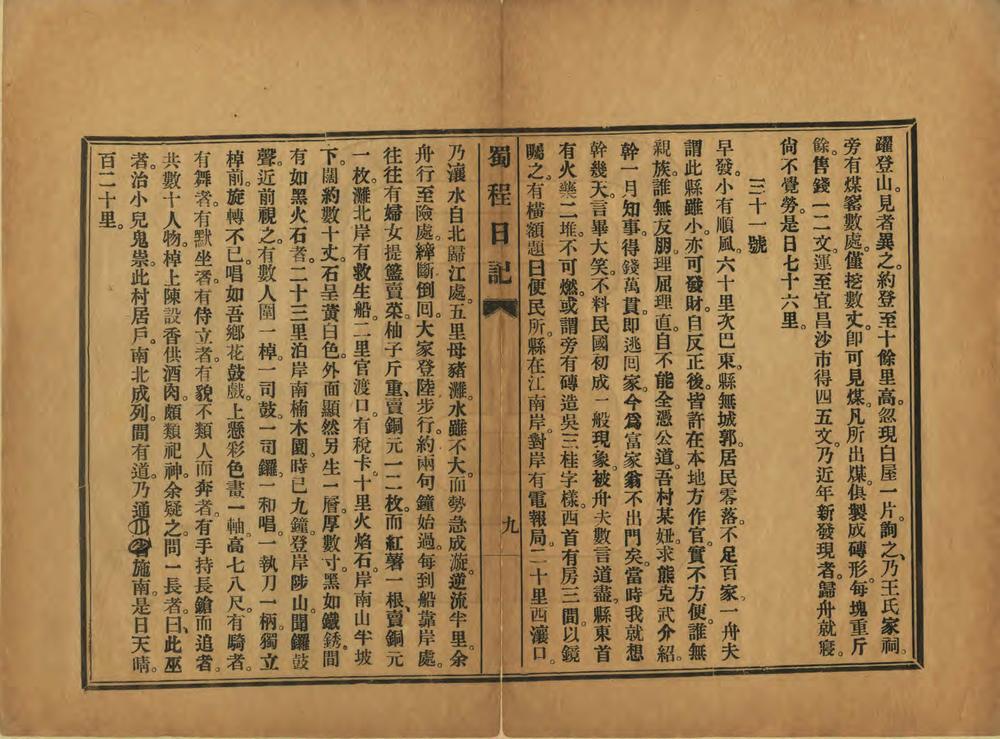 躍登山見者異之約登至十餘里高忽現白屋一片詢之乃王氏家祠。
旁有煤窰數處。僅挖數丈卽可見煤。凡所出煤俱製成磚形。每塊重斤
餘。售錢一二文。運至宜昌沙市得四五文。乃近年新發現者。歸舟就寢。
尙不覺勞。是日七十六里。
三十一號
早發。小有順風。六十里次巴東縣。無城郭。居民零落。不足百家。一舟夫
謂此縣雖小。亦可發財。自反正後。皆許在本地方作官。實不方便。誰無
親族。誰無友朋。理屈理直。自不能全憑公道。吾村某妞。求熊克武介紹。
幹一月知事。得錢萬貫。卽逃囘家。今爲富家翁。不出門矣。當時我就想
幹幾天。言畢大笑。不料民國初成。一般現象。被舟夫數言道盡。縣東首
有火藥二堆。不可燃。或謂旁有磚造吳三桂字樣。西首有房三間。以鏡
矚之。有橫額題曰便民所。縣在江南岸。對岸有電報局。二十里西瀼口。
蜀程日記
九
乃瀼水自北歸江處。五里母豬灘。水雖不大。而勢急成漩。逆流半里。余
舟行至險處。縴斷倒囘。大家登陸步行。約兩句鐘始過。每到船靠岸處。
往往有婦女提籃賣菜。柚子斤重、賣銅元一二枚。而紅薯一根、賣銅元
一枚。灘北岸有救生船。二里官渡口。有稅卡。十里火焰石。岸南山半坡
下。闊約數十丈。石呈黃白色。外面顯然另生一層。厚數寸。黑如鐵銹。間
有如黑火石者。二十三里泊岸南楠木園。時已九鐘。登岸陟山。聞鑼鼓
聲。近前視之。有數人圍一棹。一司鼓。一司鑼。一和唱。一執刀一柄。獨立
棹前。旋轉不已。唱如吾鄉花鼓戲。上懸彩色畫一軸。高七八尺。有騎者。
有舞者。有默坐者。有侍立者。有貌不類人而奔者。有手持長鎗而追者。
共數十人物。棹上陳設香供酒肉。頗類祀神。余疑之。問一長者。曰、此巫
者。治小兒鬼祟。此村居戶。南北成列。間有道。乃通川
施南。是日天晴。
百二十里。